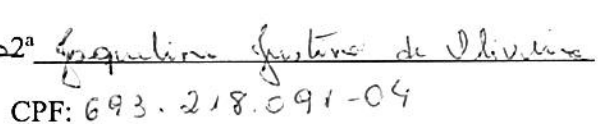 2ª Jaqueline Justino de Oliveira
CPF: 693.218.091-04